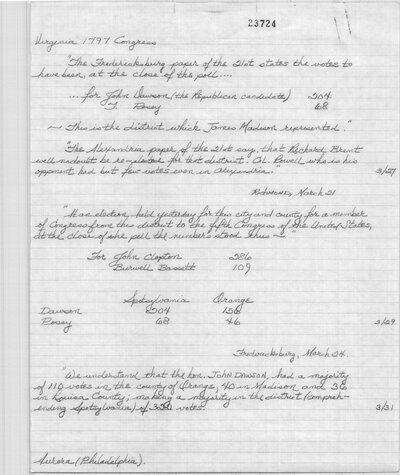 23724
Virginia 1797 Congress
"The Fredericksburg paper of the 21st states the votes to
have been, at the close of the poll....
....for John Dawson (the Republican candidate) 204
T. Posey 68
— This is the district which James Madison represented."
"The Alexandria paper of the 21st say, that Richard Brent
will no doubt be re-elected for that district. Col. Powell who is his
opponent had but few votes even in Alexandria." 3/27
RICHMOND, March 21
"At an election, held yesterday for this city and county for a member
of Congress from this district to the fifth Congress of the United States,
at the close of the poll the numbers stood thus —
For John Clopton 286
Burwell Bassett 109
Spotsylvania Orange
Dawson 204 156
Posey 68 46 3/29
Fredericksburg, March 24.
"We understand that the hon. JOHN DAWSON, had a majority
of 110 votes in the county of Orange, 40 in Madison and 36
in Louisa County; making a majority in the district (compreh-
ending Spotsylvania) of votes. 3/31
Aurora (Philadelphia).